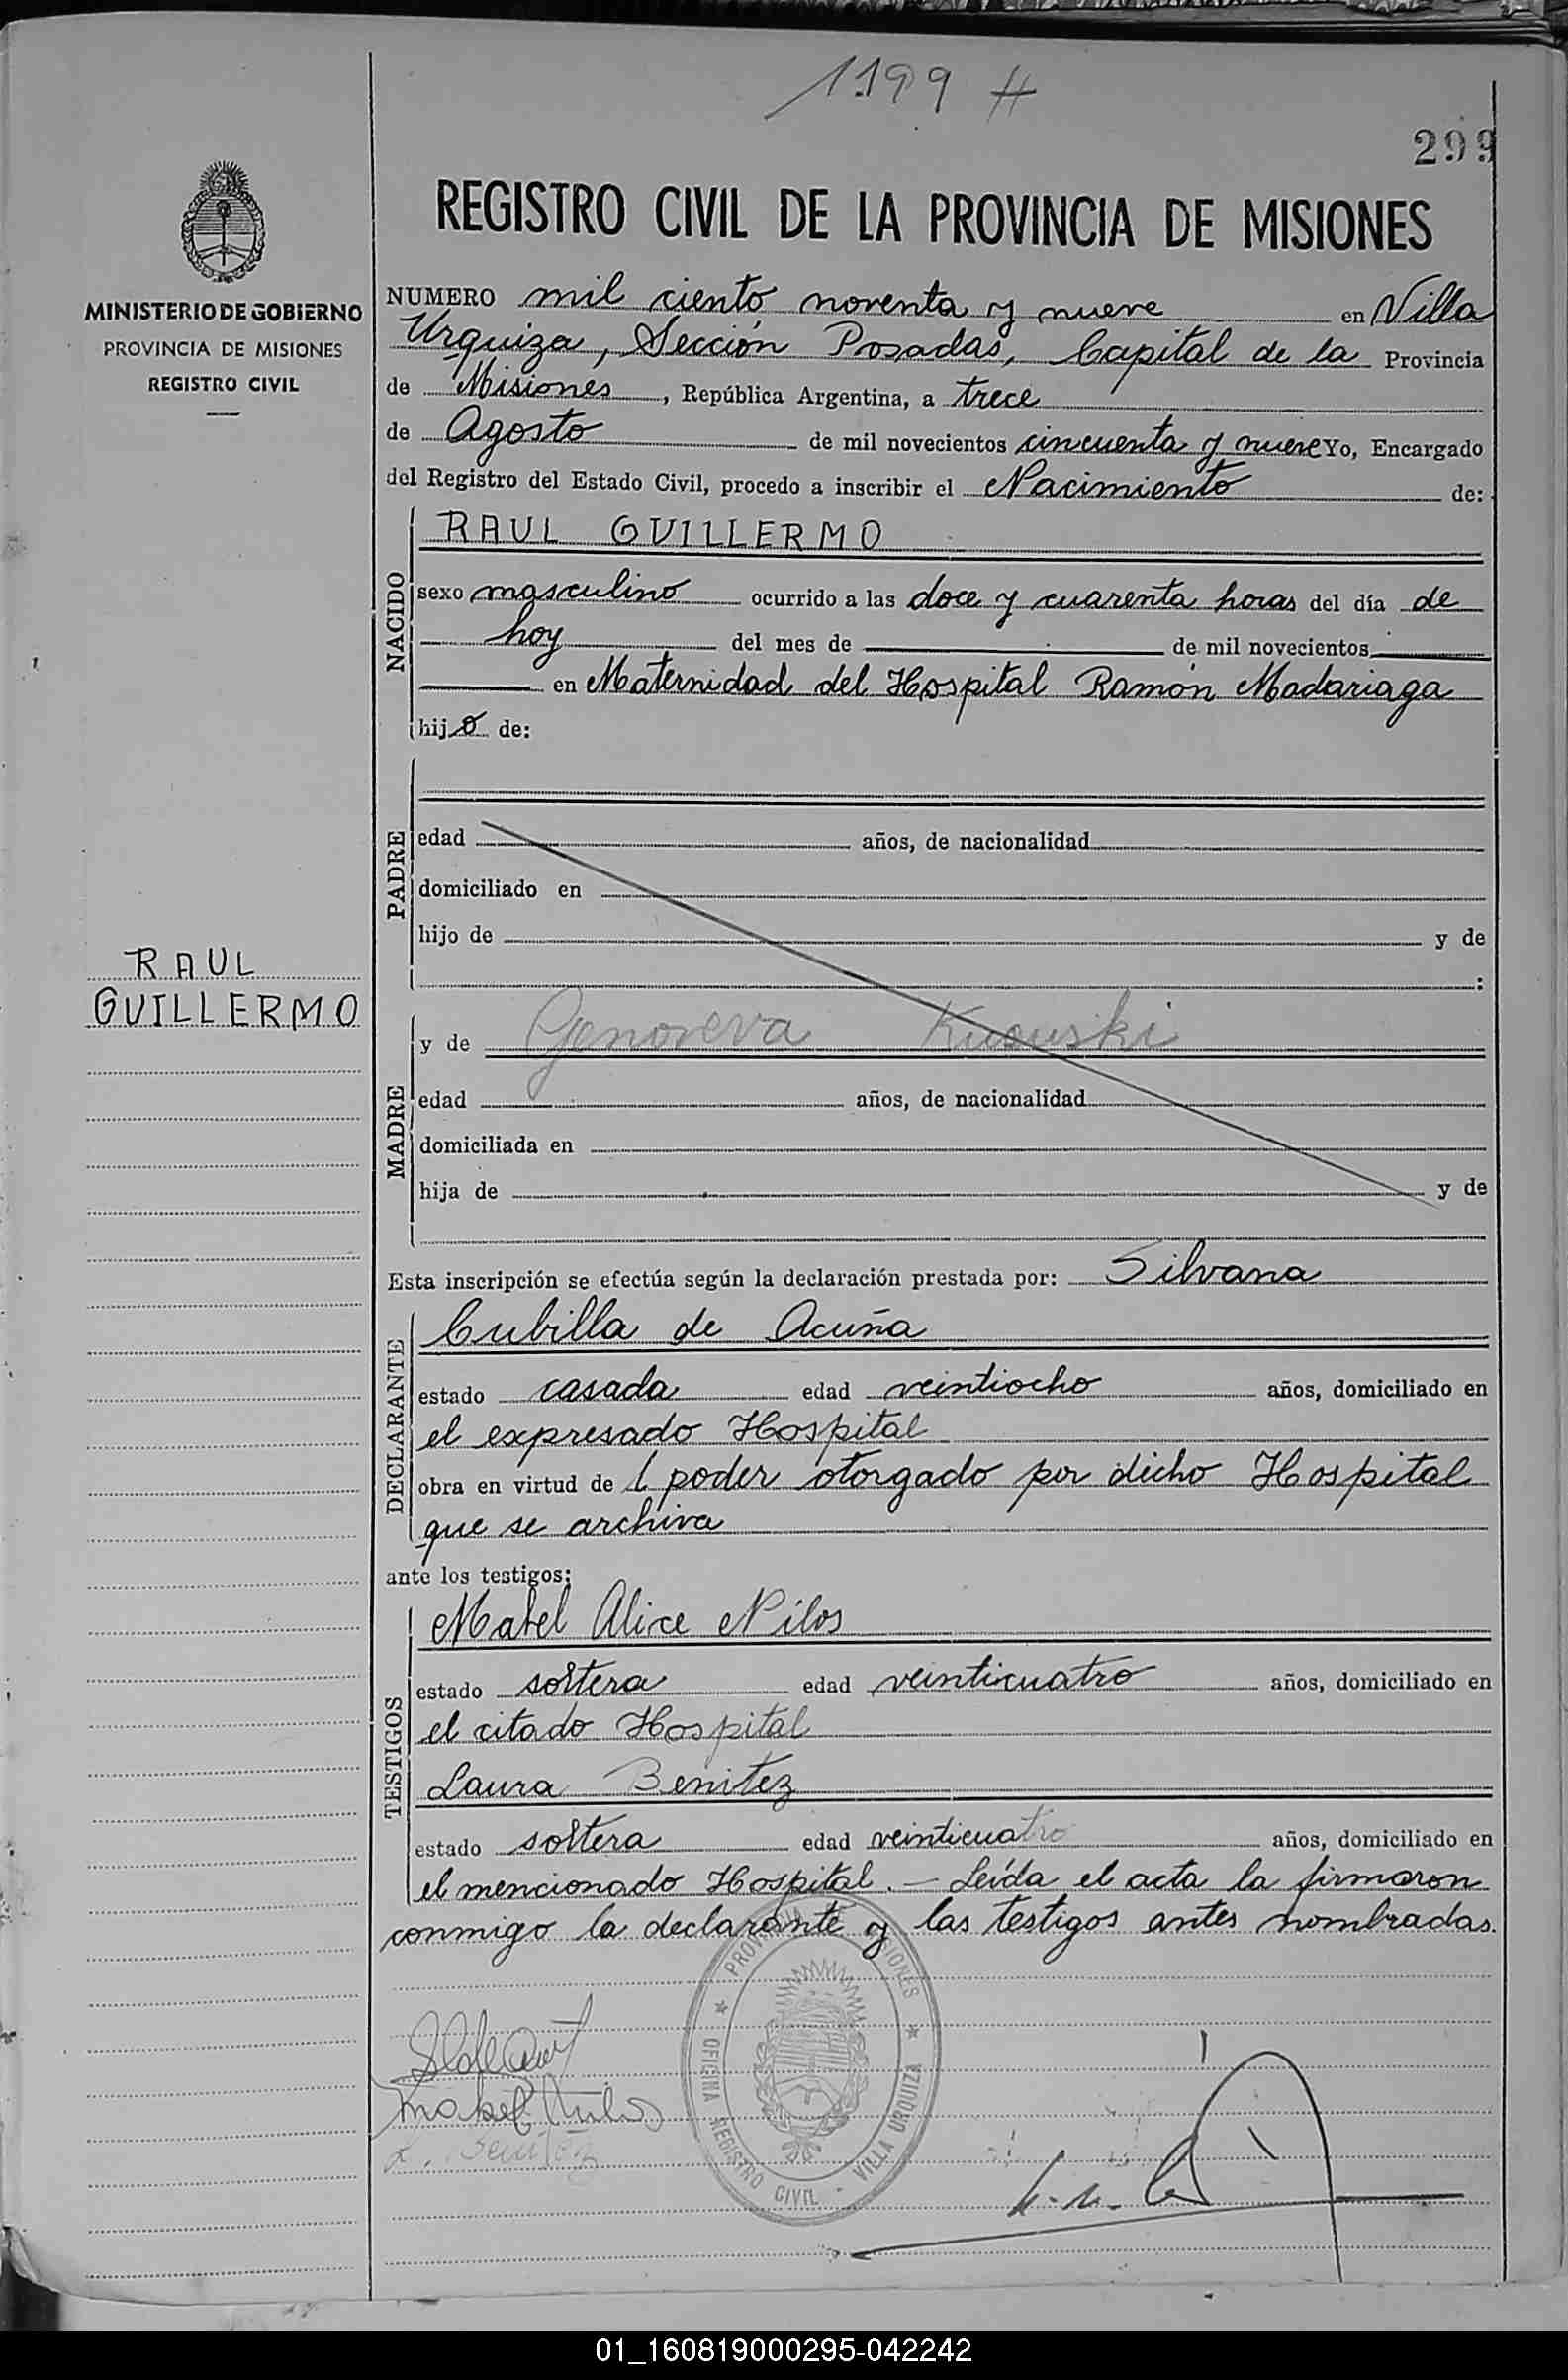 1199 #
299
MINISTERIO DE GOBIERNO
PROVINCIA DE MISIONES
REGISTRO CIVIL
RAUL
GUILLERMO
REGISTRO CIVIL DE LA PROVINCIA DE MISIONES
NUMERO mil ciento noventa y nueve en Villa
Urquiza, Sección Posadas, Capital de la Provincia
de Misiones, República Argentina, a trece
de Agosto de mil novecientos cincuenta y nueve Yo, Encargado
del Registro del Estado Civil, procedo a inscribir el Nacimiento de:
NACIDO
RAUL GUILLERMO
sexo masculino ocurrido a las doce y cuarenta horas del día de
hoy del mes de de mil novecientos
en Maternidad del Hospital Ramón Madariaga
hijo de:
PADRE
edad años, de nacionalidad
domiciliado en
hijo de y de
:
MADRE
y de Genoveva
edad años, de nacionalidad
domiciliada en
hija de y de
Esta inscripción se efectúa según la declaración prestada por: Silvana
DECLARANTE
Cubilla de Acuña
estado casada edad veintiocho años, domiciliado en
el expresado Hospital
obra en virtud de l poder otorgado por dicho Hospital
que se archiva
ante los testigos:
TESTIGOS
Mabel Alice Nilos
estado soltera edad veinticuatro años, domiciliado en
el citado Hospital
Laura Benitez
estado soltera edad veinticuatro años, domiciliado en
el mencionado Hospital. — Leída el acta la firmaron
conmigo la declarante y las testigos antes nombradas.
OFICINA REGISTRO CIVIL - VILLA URQUIZA
01_160819000295-042242